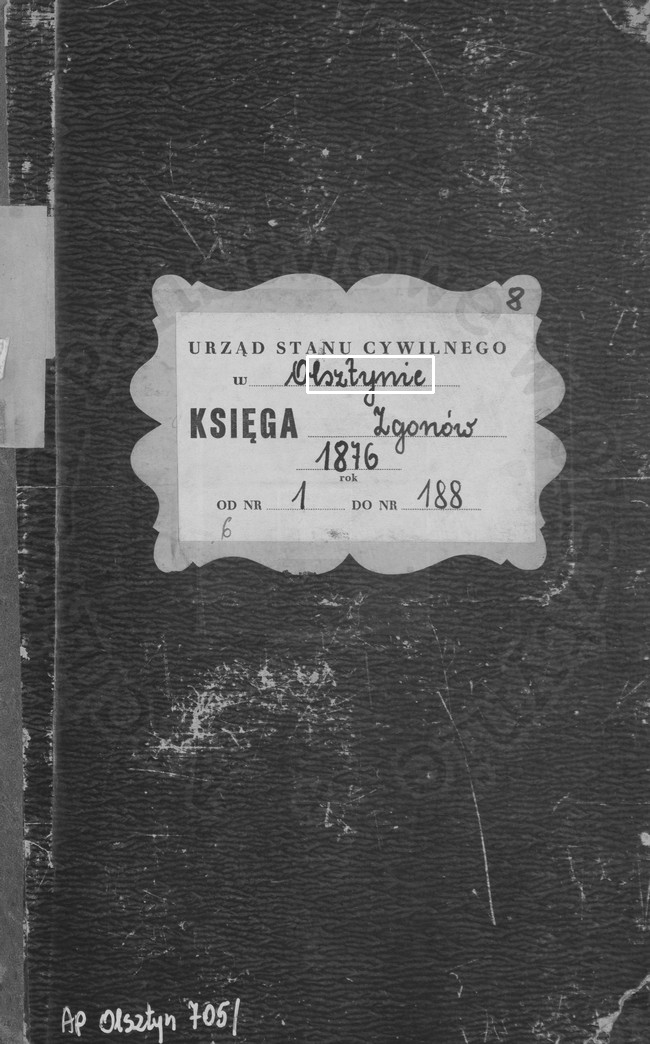 8
URZĄD STANU CYWILNEGO
w Olsztynie
KSIĘGA Zgonów
1876
rok
OD NR 1 DO NR 188
6
AP Olsztyn 705/